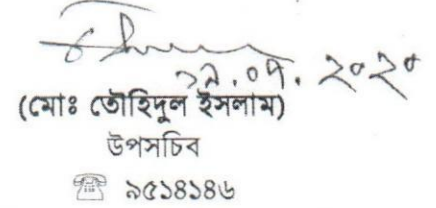 ২৯.০৭.২০২০
(মোঃ তৌহিদুল ইসলাম)
উপসচিব
☎ ৯৫১৪১৪৬